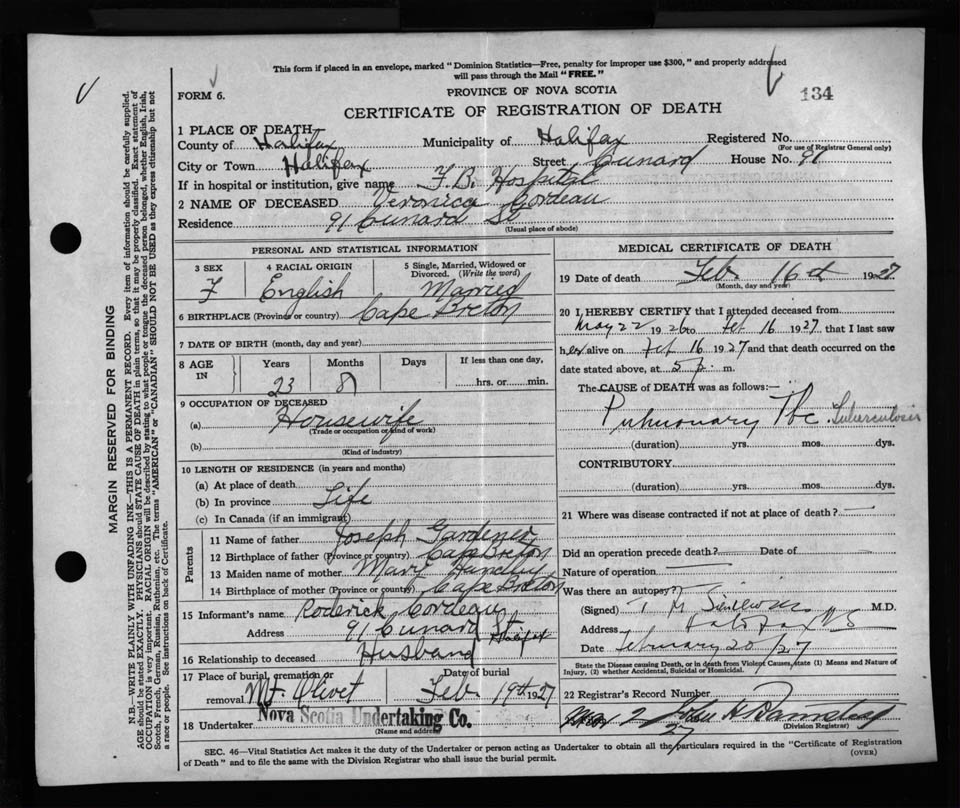 This form if placed in an envelope, marked "Dominion Statistics—Free, penalty for improper use $300," and properly addressed
will pass through the Mail "FREE."
FORM 6.
PROVINCE OF NOVA SCOTIA
134
CERTIFICATE OF REGISTRATION OF DEATH
1 PLACE OF DEATH
County of Halifax Municipality of Halifax Registered No.
(For use of Registrar General only)
City or Town Halifax Street Cunard House No. 91
If in hospital or institution, give name T.B. Hospital
2 NAME OF DECEASED Veronica Cordeau
Residence 91 Cunard St
(Usual place of abode)
PERSONAL AND STATISTICAL INFORMATION
3 SEX 4 RACIAL ORIGIN 5 Single, Married, Widowed or
Divorced. (Write the word)
F English Married
6 BIRTHPLACE (Province or country) Cape Breton
7 DATE OF BIRTH (month, day and year)
8 AGE IN Years Months Days If less than one day,
23 8 hrs. or min.
9 OCCUPATION OF DECEASED
(a) Housewife
(Trade or occupation or kind of work)
(b)
(Kind of industry)
10 LENGTH OF RESIDENCE (in years and months)
(a) At place of death
(b) In province Life
(c) In Canada (if an immigrant)
Parents
11 Name of father Joseph Gardener
12 Birthplace of father (Province or country) Cape Breton
13 Maiden name of mother Mary
14 Birthplace of mother (Province or country) Cape Breton
15 Informant's name Roderick Cordeau
Address 91 Cunard St Halifax
16 Relationship to deceased Husband
17 Place of burial, cremation or Date of burial
removal Mt. Olivet Feb 19th 1927
18 Undertaker Nova Scotia Undertaking Co.
(Name and address)
MEDICAL CERTIFICATE OF DEATH
19 Date of death Feb. 16th 1927
(Month, day and year)
20 I HEREBY CERTIFY that I attended deceased from
May 22 1926 to Feb 16 1927 that I last saw
her alive on Feb 16 1927 and that death occurred on the
date stated above, at 5 p. m.
The CAUSE OF DEATH was as follows:—
Pulmonary Tbc. Tuberculosis
(duration) yrs. mos. dys.
CONTRIBUTORY
(duration) yrs. mos. dys.
21 Where was disease contracted if not at place of death? —
Did an operation precede death? — Date of —
Nature of operation —
Was there an autopsy?
(Signed) T M M.D.
Address Halifax NS
Date February 20/27
State the Disease causing Death, or in death from Violent Causes, state (1) Means and Nature of
Injury, (2) whether Accidental, Suicidal or Homicidal.
22 Registrar's Record Number
2 John H
27 (Division Registrar)
SEC. 46—Vital Statistics Act makes it the duty of the Undertaker or person acting as Undertaker to obtain all the particulars required in the "Certificate of Registration
of Death" and to file the same with the Division Registrar who shall issue the burial permit. (OVER)
MARGIN RESERVED FOR BINDING
N.B.—WRITE PLAINLY WITH UNFADING INK—THIS IS A PERMANENT RECORD. Every item of information should be carefully supplied.
AGE should be stated EXACTLY. PHYSICIANS should STATE CAUSE OF DEATH in plain terms, so that it may be properly classified. Exact statement of
OCCUPATION is very important. RACIAL ORIGIN will be described by stating to what people or tongue the deceased person belonged, whether English, Irish,
Scotch, French, German, Russian, Ruthenian, etc. The terms "AMERICAN" or "CANADIAN" SHOULD NOT BE USED as they express citizenship but not
a race or people. See instructions on back of Certificate.